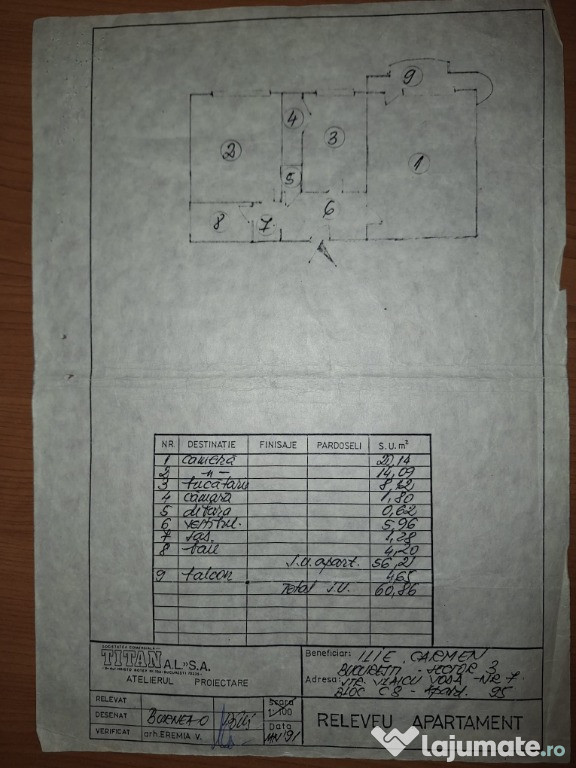 9
4
2
3
1
5
6
8
7
NR. DESTINATIE FINISAJE PARDOSELI S.U. m²
1 camera 20,14
2 —"— 14,09
3 bucatarie 8,12
4 camara 1,80
5 debara 0,62
6 vestibul. 5,96
7 sas. 1,28
8 baie 4,20
S.U. apart. 56,21
9 balcon 4,65
Total S.U. 60,86
SOCIETATEA COMERCIALA
TITAN AL" S.A.
ATELIERUL PROIECTARE
Beneficiar: ILIE CARMEN
BUCURESTI - SECTOR 3
Adresa: STR. VLAICU VODA - NR 7
BLOC C8 - Apart. 95
RELEVAT
DESENAT
VERIFICAT arh. EREMIA V.
Scara
1:100
Data
91
RELEVEU APARTAMENT
Lajumate.ro